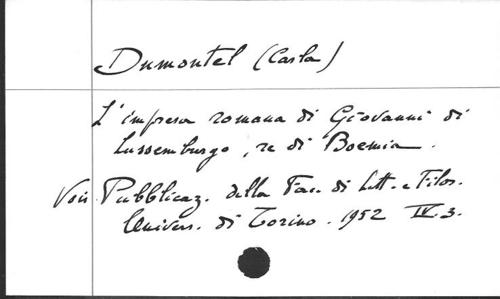 Dumontel (Carla)
L'impresa romana di Giovanni di
Lussemburgo, re di Boemia.
Voir Pubblicaz. della Fac. di Lett. e Filos.
Univers. di Torino. 1952 IV. 3.